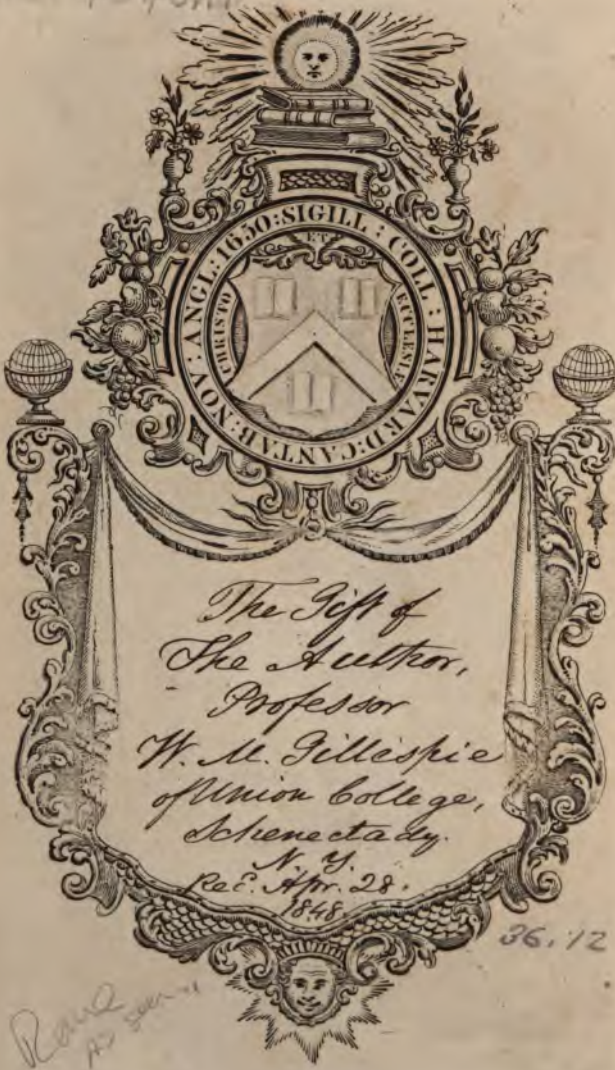 SIGILL : COLL : HARVARD : CANTAB : NOV : ANGL : 1650 :
CHRISTO
ET
ECCLESIÆ
The Gift of
The Author,
Professor
W. M. Gillespie
of Union College,
Schenectady.
N. Y.
Rec. Apr. 28.
1848.
36.12
Rome
as seen